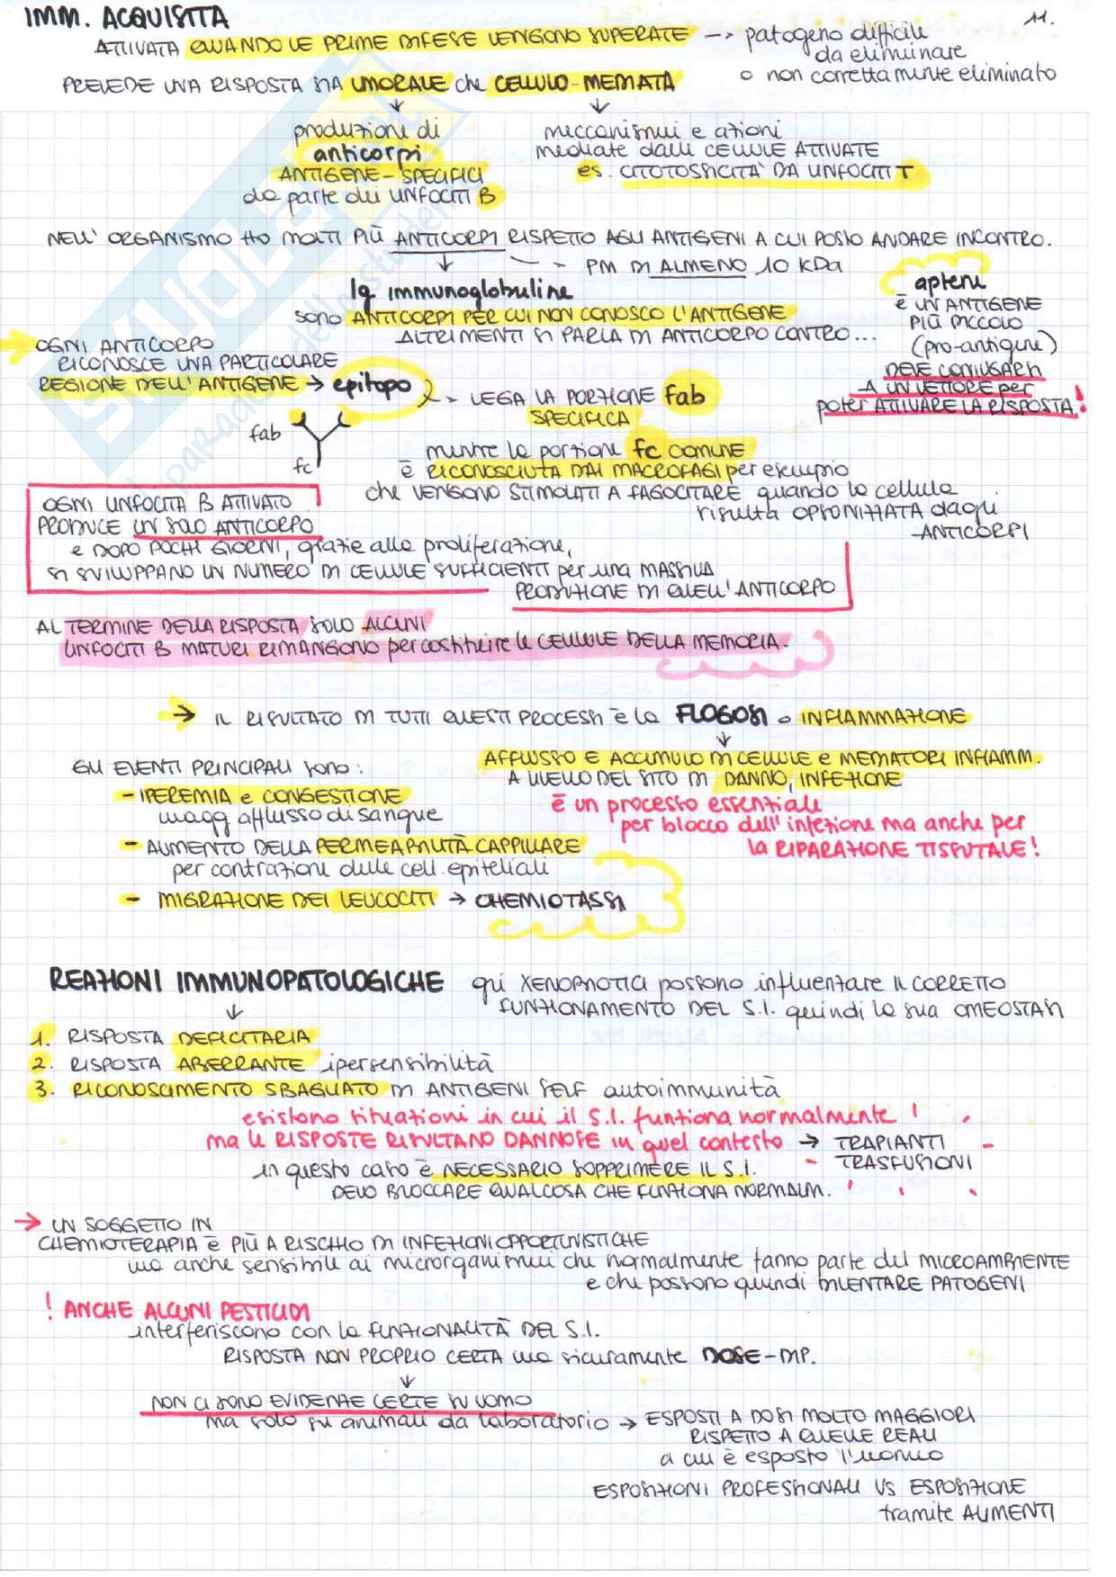 IMM. ACQUISITA
11.
ATTIVATA QUANDO LE PRIME DIFESE VENGONO SUPERATE --> patogeno difficile
da eliminare
o non correttamente eliminato
PREVEDE UNA RISPOSTA SIA UMORALE che CELLULO-MEDIATA
produzione di
anticorpi
ANTIGENE-SPECIFICI
da parte dei LINFOCITI B
meccanismi e azioni
mediate dalle CELLULE ATTIVATE
es. CITOTOSSICITÀ DA LINFOCITI T
NELL' ORGANISMO HO MOLTI PIÙ ANTICORPI RISPETTO AGLI ANTIGENI A CUI POSSO ANDARE INCONTRO.
PM DI ALMENO 10 KDa
Ig immunoglobuline
SONO ANTICORPI PER CUI NON CONOSCO L'ANTIGENE
ALTRIMENTI SI PARLA DI ANTICORPO CONTRO...
apteni
È UN ANTIGENE
PIÙ PICCOLO
(pro-antigene)
DEVE CONIUGARSI
A UN VETTORE per
poter ATTIVARE LA RISPOSTA!
→ OGNI ANTICORPO
RICONOSCE UNA PARTICOLARE
REGIONE DELL'ANTIGENE → epitopo
LEGA LA PORZIONE fab
SPECIFICA
fab
fc
mentre la porzione fc COMUNE
È RICONOSCIUTA DAI MACROFAGI per esempio
che VENGONO STIMOLATI A FAGOCITARE quando la cellula
risulta OPSONIZZATA dagli
ANTICORPI
OGNI LINFOCITA B ATTIVATO
PRODUCE UN SOLO ANTICORPO
e DOPO POCHI GIORNI, grazie alla proliferazione,
SI SVILUPPANO UN NUMERO DI CELLULE SUFFICIENTI per una MASSIVA
PRODUZIONE DI QUELL'ANTICORPO
AL TERMINE DELLA RISPOSTA SOLO ALCUNI
LINFOCITI B MATURI RIMANGONO per costituire le CELLULE DELLA MEMORIA.
→ IL RISULTATO DI TUTTI QUESTI PROCESSI È la FLOGOSI o INFIAMMAZIONE
AFFLUSSO E ACCUMULO DI CELLULE e MEDIATORI INFIAMM.
A LIVELLO DEL SITO DI DANNO, INFEZIONE
è un processo essenziale
per blocco dell'infezione ma anche per
la RIPARAZIONE TISSUTALE!
GLI EVENTI PRINCIPALI sono:
- IPEREMIA e CONGESTIONE
magg afflusso di sangue
- AUMENTO DELLA PERMEABILITÀ CAPILLARE
per contrazione delle cell. epiteliali
- MIGRAZIONE DEI LEUCOCITI → CHEMIOTASSI
REAZIONI IMMUNOPATOLOGICHE gli XENOBIOTICI possono influenzare IL CORRETTO
FUNZIONAMENTO DEL S.I. quindi la sua OMEOSTASI
1. RISPOSTA DEFICITARIA
2. RISPOSTA ABERRANTE ipersensibilità
3. RICONOSCIMENTO SBAGLIATO DI ANTIGENI SELF autoimmunità
esistono situazioni in cui il S.I. funziona normalmente!
ma le RISPOSTE RISULTANO DANNOSE in quel contesto → TRAPIANTI
TRASFUSIONI
in questo caso è NECESSARIO SOPPRIMERE IL S.I.
DEVO BLOCCARE QUALCOSA CHE FUNZIONA NORMALM.
→ UN SOGGETTO IN
CHEMIOTERAPIA è PIÙ A RISCHIO DI INFEZIONI OPPORTUNISTICHE
ma anche sensibile ai microrganismi che normalmente fanno parte del MICROAMBIENTE
e che possono quindi DIVENTARE PATOGENI
! ANCHE ALCUNI PESTICIDI
interferiscono con la FUNZIONALITÀ DEL S.I.
RISPOSTA NON PROPRIO CERTA ma sicuramente DOSE-DIP.
NON CI SONO EVIDENZE CERTE SU UOMO
ma solo su animali da laboratorio → ESPOSTI A DOSI MOLTO MAGGIORI
RISPETTO A QUELLE REALI
a cui è esposto l'uomo
ESPOSIZIONI PROFESSIONALI VS ESPOSIZIONE
tramite ALIMENTI